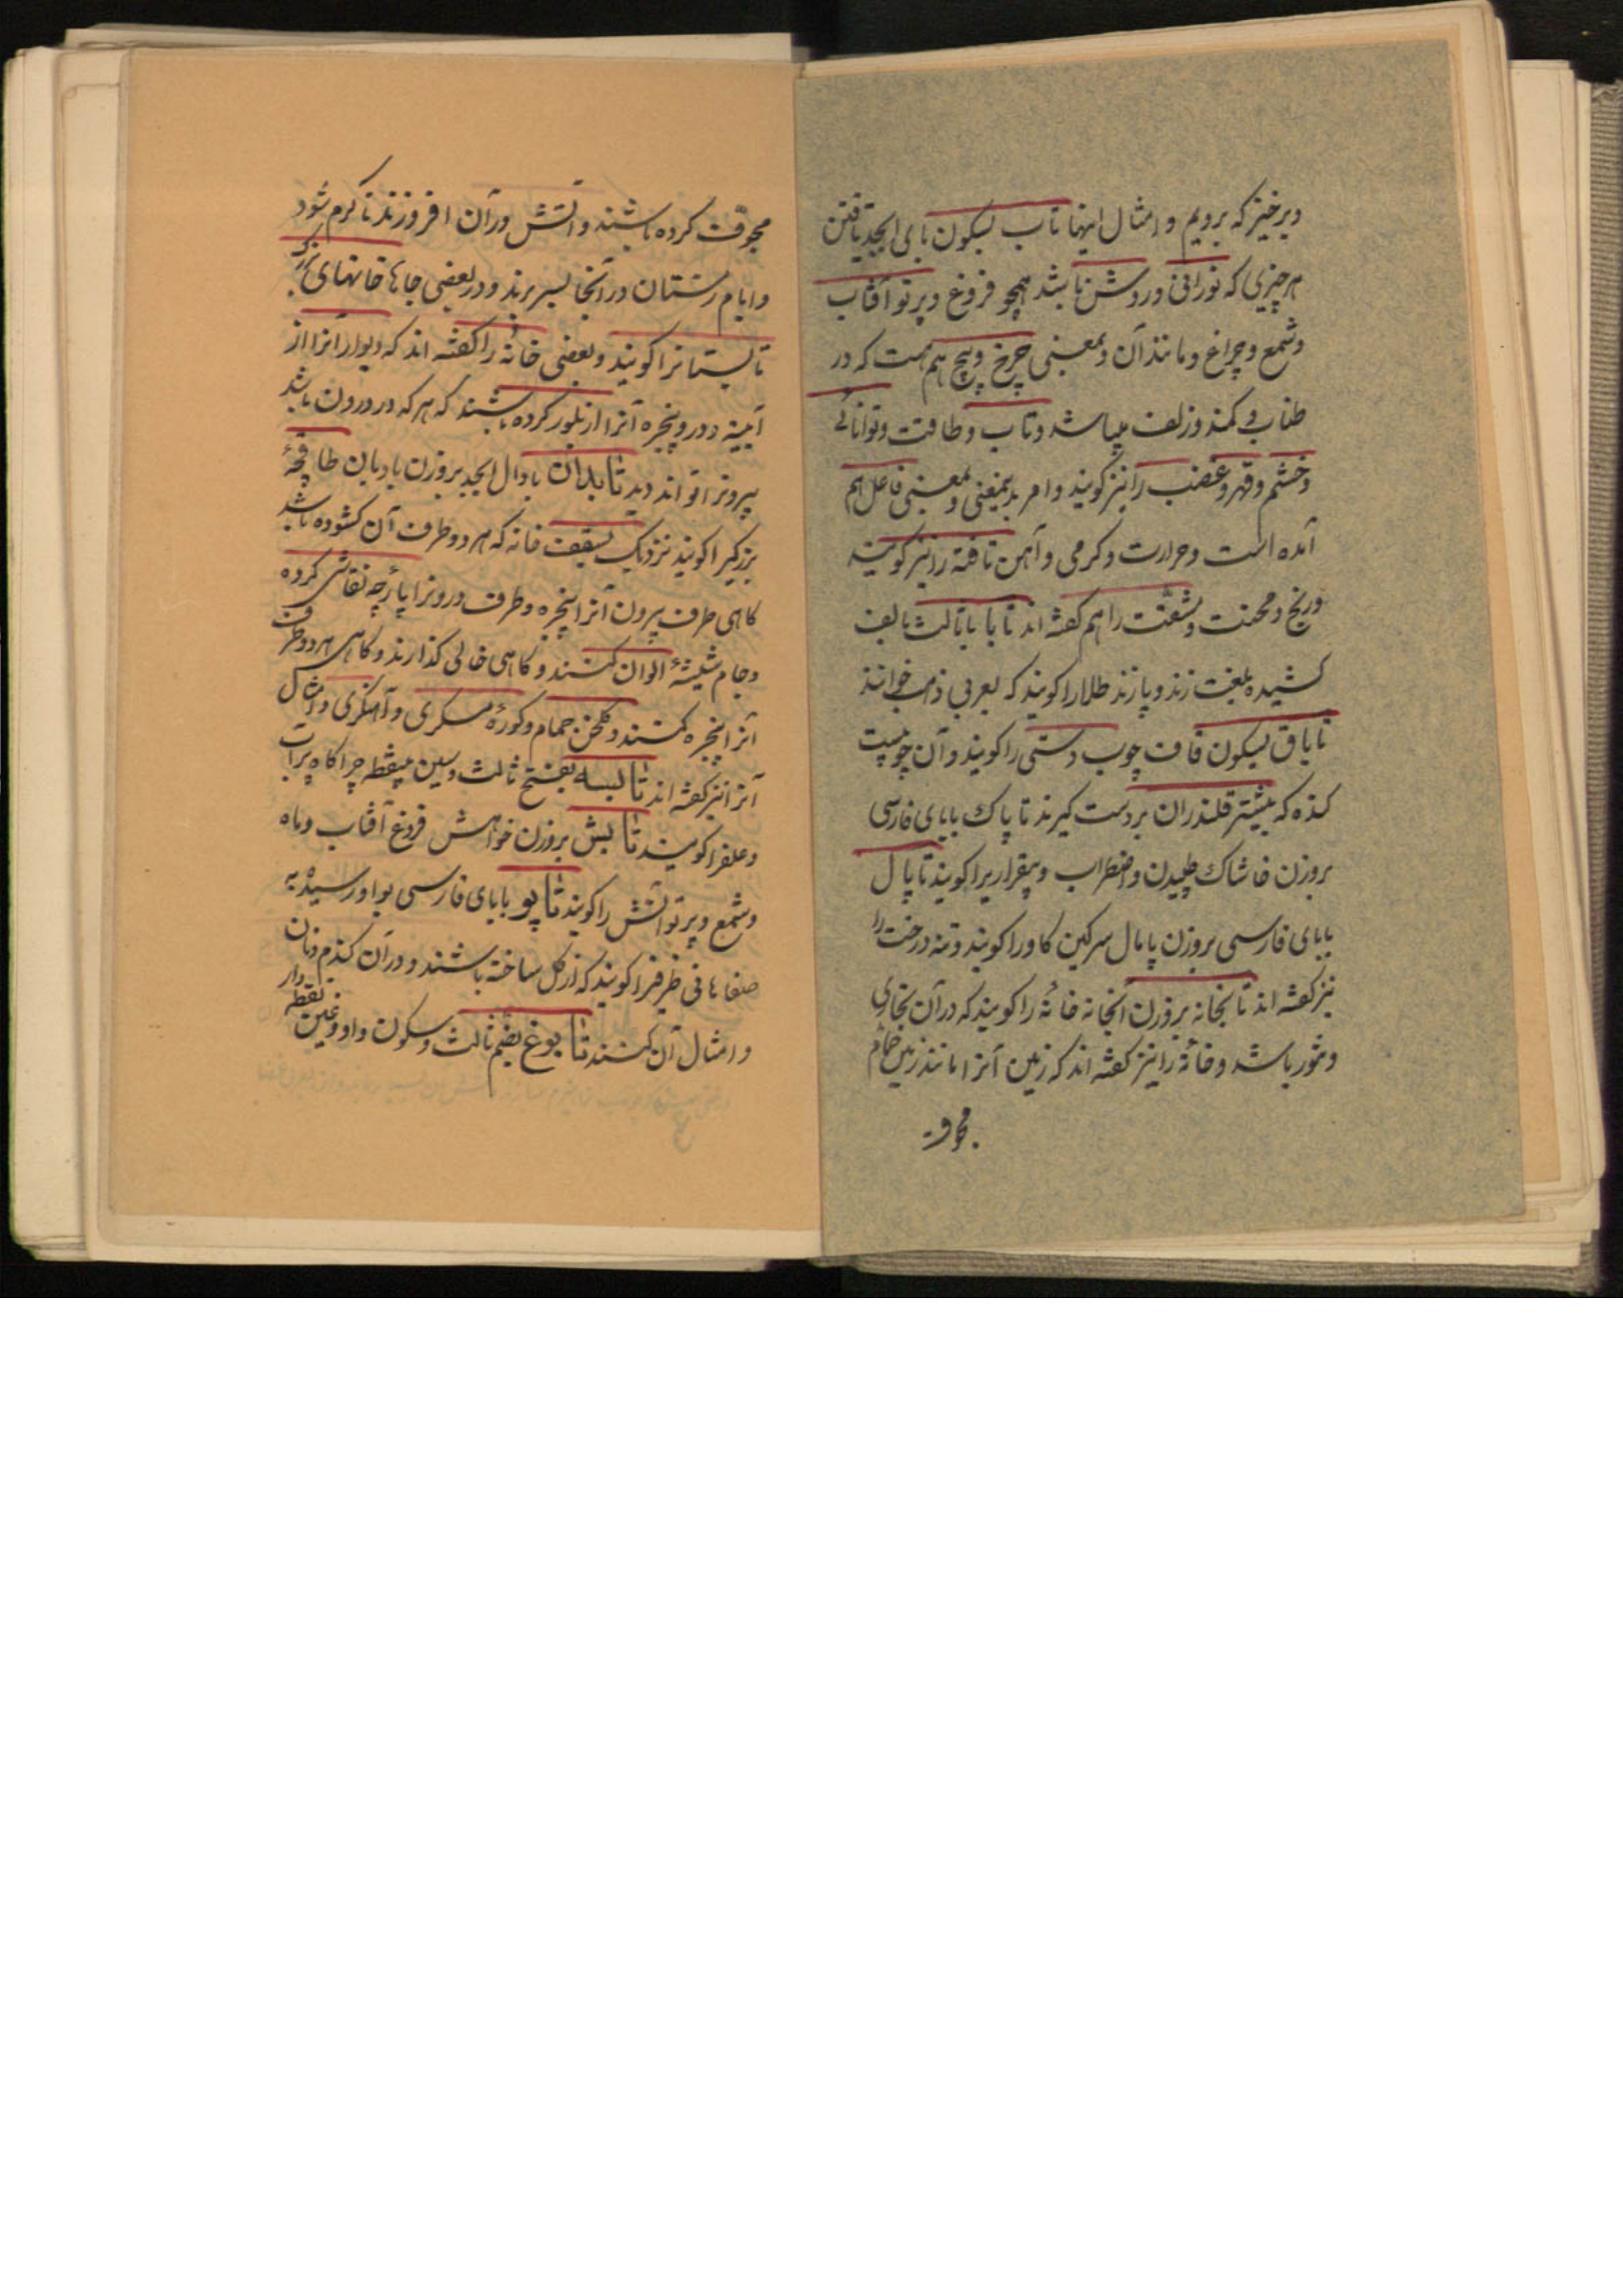 وبرخیز که برویم و امثال اینها تاب بسکون بای ابجد تافتن
هرچیزی که نورانی و روشن باشد همچو فروغ و پرتو آفتاب
و شمع و چراغ و مانند آن و بمعنی چرخ و پیچ هم هست که در
طناب و کمند و زلف میباشد و تاب و طاقت و توانائی
و خشم و قهر و غضب را نیز گویند و امر بدینمعنی و بمعنی فاعل هم
آمده است و حرارت و گرمی و آهن تافته را نیز گویند
و رنج و محنت و مشقت را هم گفته اند تابا با ثالث بالف
کشیده بلغت زند و پازند طلا را گویند که بعربی ذهب خوانند
تاباق بسکون قاف چوب دستی را گویند و آن چوبیست
کنده که بیشتر قلندران بردست گیرند تاپاک با بای فارسی
بروزن خاشاک طپیدن و اضطراب و بیقراریرا گویند تاپال
با بای فارسی بروزن پامال سرگین گاو را گویند و تنه درخت را
نیز گفته اند تابخانه بروزن آنخانه خانهٔ را گویند که در آن بخاری
و تنور باشد و خانهٔ را نیز گفته اند که زمین آنرا مانند زمین حمام
مجوف
مجوّف کرده باشند و آتش در آن افروزند تا گرم شود
و ایام زمستان در آنجا بسر برند و در بعضی جاها خانهای بزرگ
تابستانرا گویند و بعضی خانه را گفته اند که دیوار آنرا از
آیینه و در و پنجره آنرا از بلور کرده باشند که هرکه در درون باشد
بیرونرا تواند دید تابدان با دال ابجد بروزن بادبان طاقچهٔ
بزرگیرا گویند نزدیک بسقف خانه که هر دو طرف آن گشوده باشد
گاهی طرف بیرون آنرا پنجره و طرف درونرا پارچه نقاشی کرده
و جام شیشهٔ الوان کنند و گاهی خالی گذارند و گاهی هر دو طرف
آنرا پنجره کنند و گلخن حمام و کورهٔ مسگری و آهنگری و امثال
آنرا نیز گفته اند تابسه بفتح ثالث و سین بینقطه چراگاه پر آب
و علفرا گویند تابش بروزن خواهش فروغ آفتاب و ماه
و شمع و پرتو آتش را گویند تاپو با بای فارسی بواو رسیده به
صفاهانی ظرفیرا گویند که از گل ساخته باشند و در آن گندم و نان
و امثال آن کنند تابوغ بضم ثالث و سکون واو و غین نقطه دار